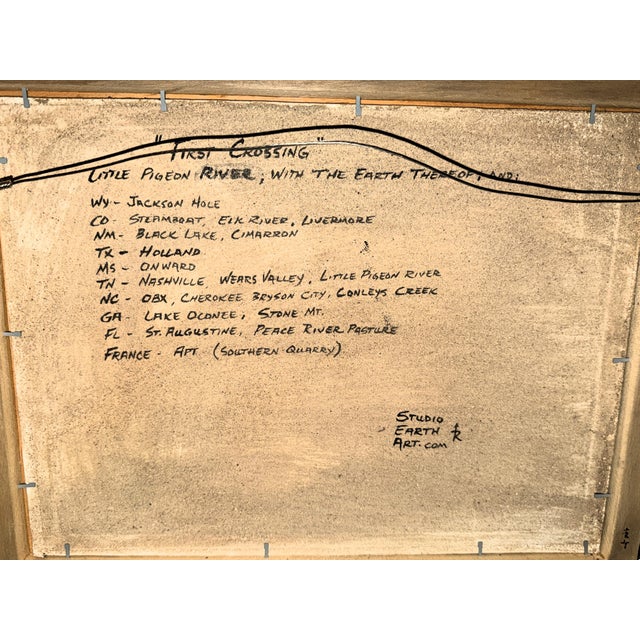 "First Crossing"
Little Pigeon River, with the Earth Thereof, and:
Wy - Jackson Hole
CO - Steamboat, Elk River, Livermore
NM - Black Lake, Cimarron
TX - Holland
MS - Onward
TN - Nashville, Wears Valley, Little Pigeon River
NC - OBX, Cherokee Bryson City, Conleys Creek
GA - Lake Oconee, Stone Mt.
FL - St. Augustine, Peace River Pasture
France - Apt (Southern Quarry)
Studio
Earth
Art.com